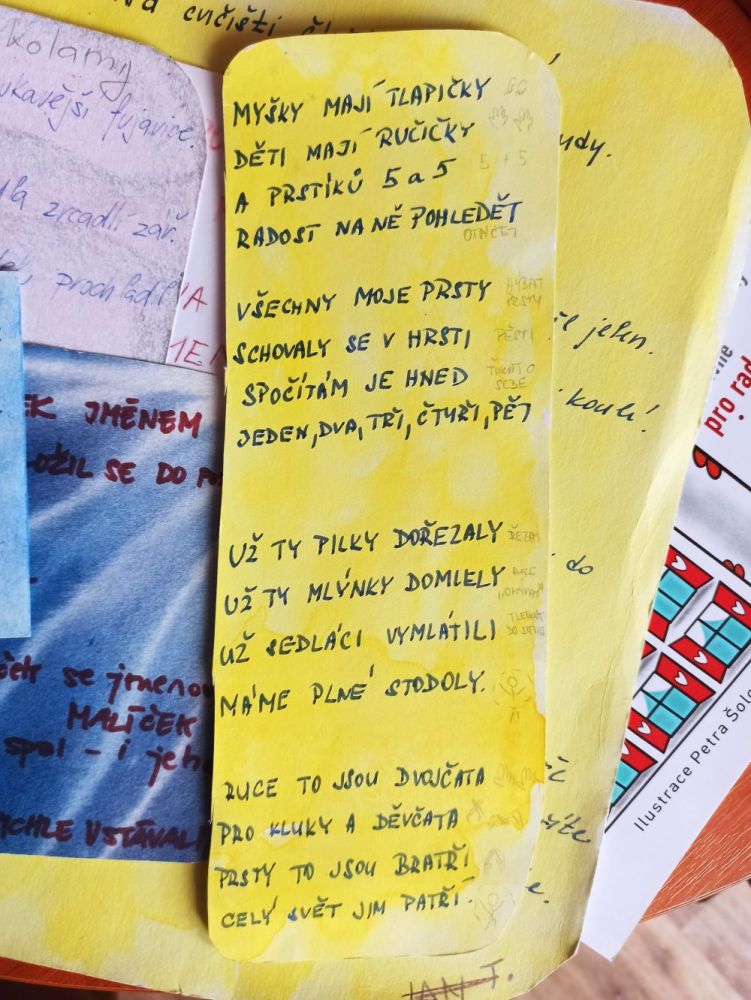 kolamy
MYŠKY MAJÍ TLAPIČKY
DĚTI MAJÍ RUČIČKY
A PRSTÍKŮ 5 a 5
5 + 5
RADOST NA NĚ POHLEDĚT
VŠECHNY MOJE PRSTY
HÝBAT
PRSTY
SCHOVALY SE V HRSTI
PĚSTI
SPOČÍTÁM JE HNED
ŤUKAT O
SEBE
JEDEN, DVA, TŘI, ČTYŘI, PĚT
UŽ TY PILKY DOŘEZALY
UŽ TY MLÝNKY DOMLELY
RUCE
UŽ SEDLÁCI VYMLÁTILI
TLESKAT
MÁME PLNÉ STODOLY.
RUCE TO JSOU DVOJČATA
PRO KLUKY A DĚVČATA
PRSTY TO JSOU BRATŘI
CELÝ SVĚT JIM PATŘÍ.
zrcadlí zář.
JMÉNEM
SE DO
se jmenov
MALÍČEK
spal - i jeho
VSTÁVAL
jelen.
do
pro rad
Ilustrace Petra Šolc
JAN T.